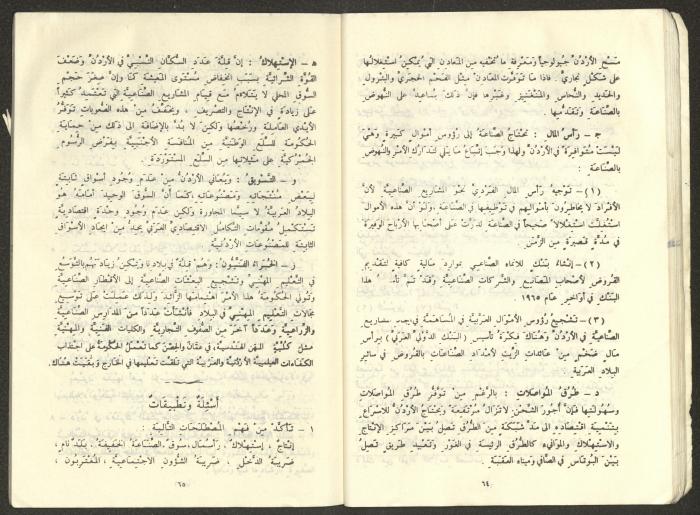 مسح الأردن جيولوجياً ومعرفة ما تخفيه من المعادن التي يمكن استغلالها
على شكل تجاري . فاذا ما توفرت المعادن مثل الفحم الحجري والبترول
والحديد والنحاس والمنغنيز وغيرها فإن ذلك يساعد على النهوض
بالصناعة وتقدمها .
جـ – رأس المال : تحتاج الصناعة إلى رؤوس أموال كبيرة وهي
ليست متوافرة في الأردن ولهذا وجب إتباع ما يلي لتدارك الأمر والنهوض
بالصناعة :
(١) – توجيه رأس المال الفردي نحو المشاريع الصناعية لأن
الأفراد لا يخاطرون بأموالهم في توظيفها في الصناعة ولو أن هذه الأموال
استغلت استغلالاً صحيحاً في الصناعة لدرّت على أصحابها الأرباح الوفيرة
في مدة قصيرة من الزمن .
(٢) – إنشاء بنك للانماء الصناعي بموارد مالية كافية لتقديم
القروض لأصحاب المصانع والشركات الصناعية وقد تم تأسيس هذا
البنك في أواخر عام ١٩٦٥
(٣) – تشجيع رؤوس الأموال العربية في المساهمة في إيجاد مشاريع
الصناعية في الأردن وهناك فكرة تأسيس (البنك الدولي العربي) برأس
مال ضخم من عائدات الزيت لامداد الصناعات بالقروض في سائر
البلاد العربية .
د – طرق المواصلات : بالرغم من توفر طرق المواصلات
وسهولتها فإن أجور الشحن لا تزال مرتفعة ويحتاج الأردن للاسراع
بتنمية اقتصاده الى مد شبكة من الطرق تصل بين مراكز الإنتاج
والاستهلاك والموانىء كالطرق الرئيسة في الغور وتعبيد طريق تصل
بين البوتاس في الصافي وميناء العقبة .
٦٤
هـ – الإستهلاك : إن قلة عدد السكان النسبي في الأردن وضعف
القوة الشرائية بسبب انخفاض مستوى المعيشة كما وإن صغر حجم
السوق المحلي لا يتلاءم مع قيام المشاريع الصناعية التي تعتمد كثيراً
على زيادة في الإنتاج والتصريف ، ويخفف من هذه الصعوبات توفر
الأيدي العاملة ورخصها ولكن لا بد بالإضافة الى ذلك من حماية
الحكومة للسلع الوطنية من المنافسة الأجنبية بفرض الرسوم
الجمركية على مثيلاتها من السلع المستوردة .
و – التسويق : ويعاني الأردن من عدم وجود أسواق ثابتة
لبعض منتجاته ومصنوعاته كما أن السوق الوحيد أمامه هو
البلاد العربية لا سيما المجاورة ولكن عدم وجود وحدة اقتصادية
تستكمل مقومات التكامل الاقتصادي العربي يحد من إيجاد الأسواق
الثابتة للمصنوعات الأردنية .
ز – الخبراء الفنيون : وهم قلة في بلادنا ويمكن زيادتهم بالتوسع
في التعليم المهني وتشجيع البعثات الصناعية إلى الأقطار الصناعية
وتولي الحكومة هذا الأمر اهتمامها الزائد ولذلك عملت على توسيع
مجالات التعليم المهني في البلاد فأنشأت عدداً من المدارس الصناعية
والزراعية وعدداً آخر من الصفوف التجارية والكليات الفنية والمهنية
مثل كلية المهن الهندسية ، في عمان والحصن كما تعمل الحكومة على اجتذاب
الكفاءات العلمية الأردنية والعربية التي تلقت تعليمها في الخارج وبقيت هناك .
أسئلة وتطبيقات
١ – تأكد من فهم المصطلحات التالية :
إنتاج ، إستهلاك ، رأسمال ، سوق ، الصناعة الخفيفة ، بلد نام ،
ضريبة الدخل ، ضريبة الشؤون الاجتماعية ، المغتربون ،
٦٥